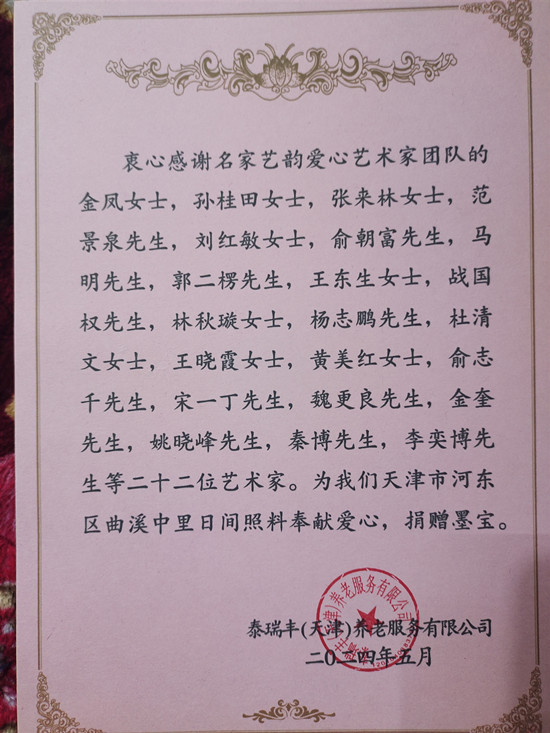 衷心感谢名家艺韵爱心艺术家团队的
金凤女士，孙桂田女士，张来林女士，范
景泉先生，刘红敏女士，俞朝富先生，马
明先生，郭二楞先生，王东生女士，战国
权先生，林秋璇女士，杨志鹏先生，杜清
文女士，王晓霞女士，黄美红女士，俞志
千先生，宋一丁先生，魏更良先生，金奎
先生，姚晓峰先生，秦博先生，李奕博先
生等二十二位艺术家。为我们天津市河东
区曲溪中里日间照料奉献爱心，捐赠墨宝。
泰瑞丰(天津)养老服务有限公司
二〇二四年五月
泰瑞丰(天津)养老服务有限公司